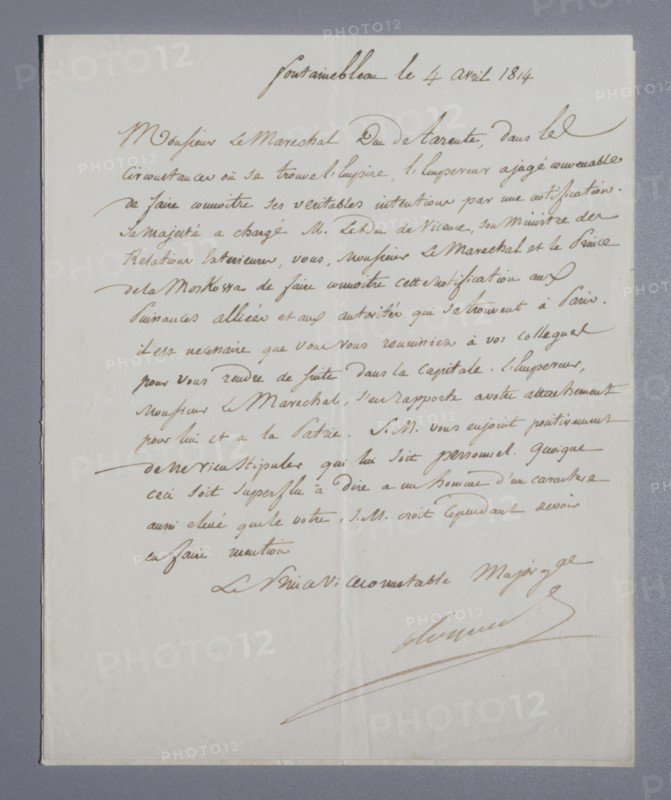 fontainebleau le 4 avril 1814
Monsieur Le Marechal Duc de tarente, dans les
Circonstances où se trouve l'Empire, l'Empereur a jugé convenable
de faire connoitre ses veritables intentions par une notification.
Sa majesté a chargé M. Le Duc de Vicence, son Ministre des
Relations Exterieures, vous, Monsieur Le Marechal et le Prince
de la Moskowa de faire connoitre cette Notification aux
Puissances alliées et aux autorités qui se trouvent à Paris.
il est necessaire que vous vous reunissiez à vos collegues
pour vous rendre de suite dans la Capitale. l'Empereur,
Monsieur Le Marechal, s'en rapporte a votre attachement
pour lui et a la Patrie. S.M. vous enjoint positivement
de ne rien stipuler qui lui soit personnel. quoique
ceci soit superflu à dire a un homme d'un caractere
aussi elevé que le votre, S.M. croit cependant devoir
en faire mention
Le Prince Vice connetable Major gal
PHOTO12